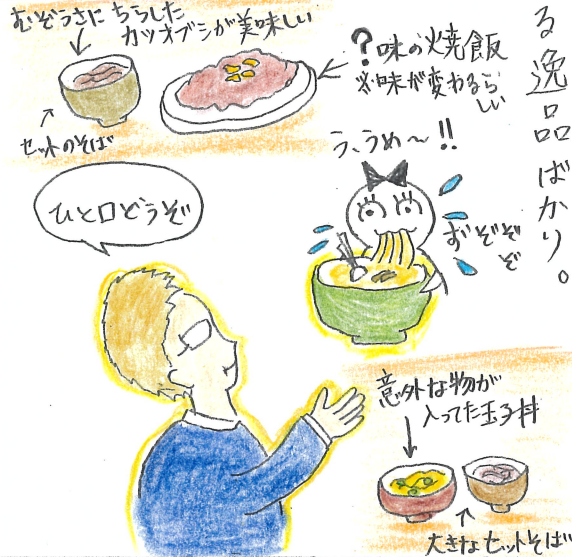 る逸品ばかり。
むぞうさに ちらした
カツオブシが美味しい
?味の焼飯
※味が変わるら
しい
セットのそば
う、うめ〜!!
ずぞぞぞ
ぞ
ひと口どうぞ
意外な物が
入ってた玉子丼
大きなセットそば